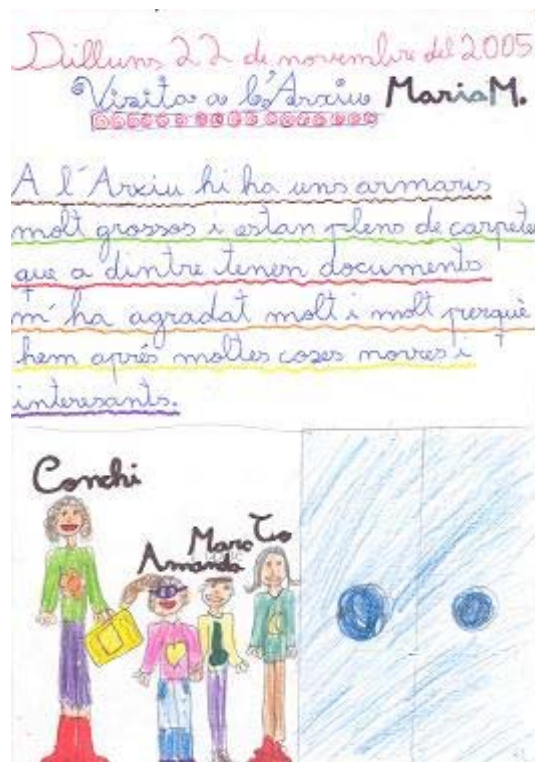 Dilluns 22 de novembre del 2005
Visita a l'Arxiu MariaM.
A l'Arxiu hi ha uns armaris
molt grossos i estan plens de carpete
que a dintre tenen documents
m'ha agradat molt i molt perquè
hem aprés moltes coses noves i
interesants.
Conchi
Amanda
Marc